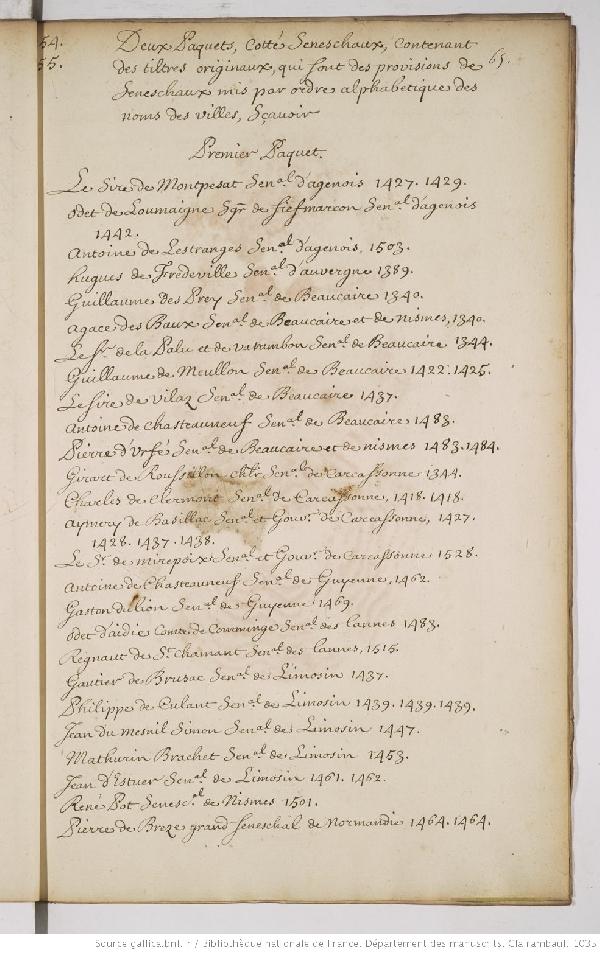 54.
55.
65.
Deux Paquets, Cotté Seneschaux, Contenant
des tiltres originaux, qui sont des provisions de
Seneschaux mis par ordre alphabetique des
noms des villes, Sçavoir
Premier Paquet.
Le Sire de Montpesat Sen.al d'agenois 1427. 1429.
Odet de Loumaigne Sgr. de fiefmarcon Sen.al d'agenois
1442.
Antoine de Lestranges Sen.al d'agenois, 1503.
Hugues de Fredeville Sen.al d'auvergne 1389.
Guillaume des Prey Sen.al de Beaucaire 1340.
Agace des Baux Sen.al de Beaucaire et de nismes, 1340.
Le Sr. de la Palu et de varambon Sen.al de Beaucaire 1344.
Guillaume de Meullon Sen.al de Beaucaire 1422. 1425.
Le Sire de Vilaz Sen.al de Beaucaire 1437.
Antoine de Chasteauneuf Sen.al de Beaucaire 1483.
Pierre d'Urfé Sen.al de Beaucaire et de nismes 1483. 1484.
Girart de Roussillon chlr. Sen.al de Carcassonne 1344.
Charles de Clermont Sen.al de Carcassonne, 1418. 1418.
Aymery de Basillac Sen.al et Gouvr. de Carcassonne, 1427.
1428. 1437. 1438.
Le Sr. de mirepoix Sen.al et Gouvr. de Carcassonne 1528.
Antoine de Chasteauneuf Sen.al de Guyenne, 1462.
Gaston du lion Sen.al de Guyenne 1469.
Odet d'aidie Comte de Comminge Sen.al des lannes 1483.
Regnaut de St. Chamant Sen.al des lannes, 1515.
Gautier de Brusac Sen.al de Limosin 1437.
Philippe de Culant Sen.al de Limosin 1439. 1439. 1439.
Jean du mesnil Simon Sen.al de Limosin 1447.
Mathurin Brachet Sen.al de Limosin 1453.
Jean d'Estuer Sen.al de Limosin 1461. 1462.
René Pot Senesc.al de Nismes 1501.
Pierre de Breze grand Seneschal de Normandie 1464. 1464.
Source gallica.bnf.fr / Bibliothèque nationale de France. Département des manuscrits. Clairambault. 1035